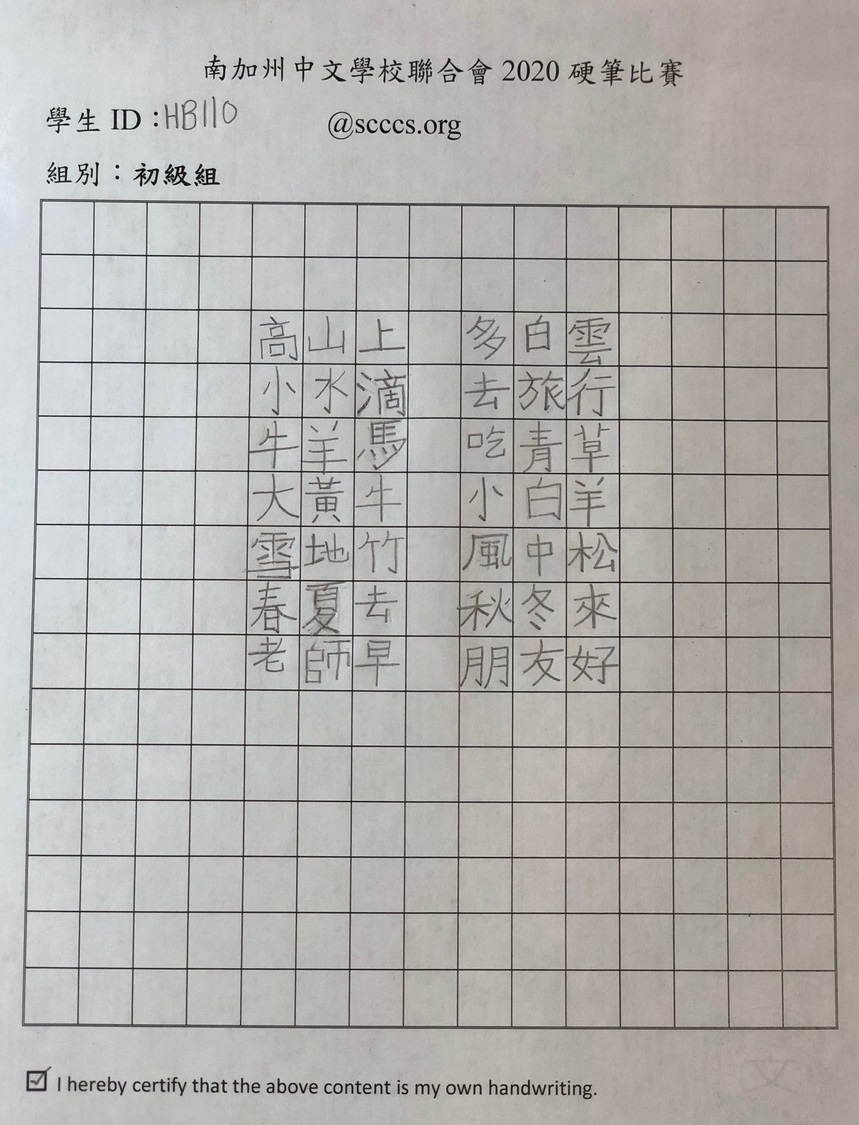 南加州中文學校聯合會 2020 硬筆比賽
學生 ID：HB110 @scccs.org
組別：初級組
高山上 多白雲
小水滴 去旅行
牛羊馬 吃青草
大黃牛 小白羊
雪地竹 風中松
春夏去 秋冬來
老師早 朋友好
I hereby certify that the above content is my own handwriting.